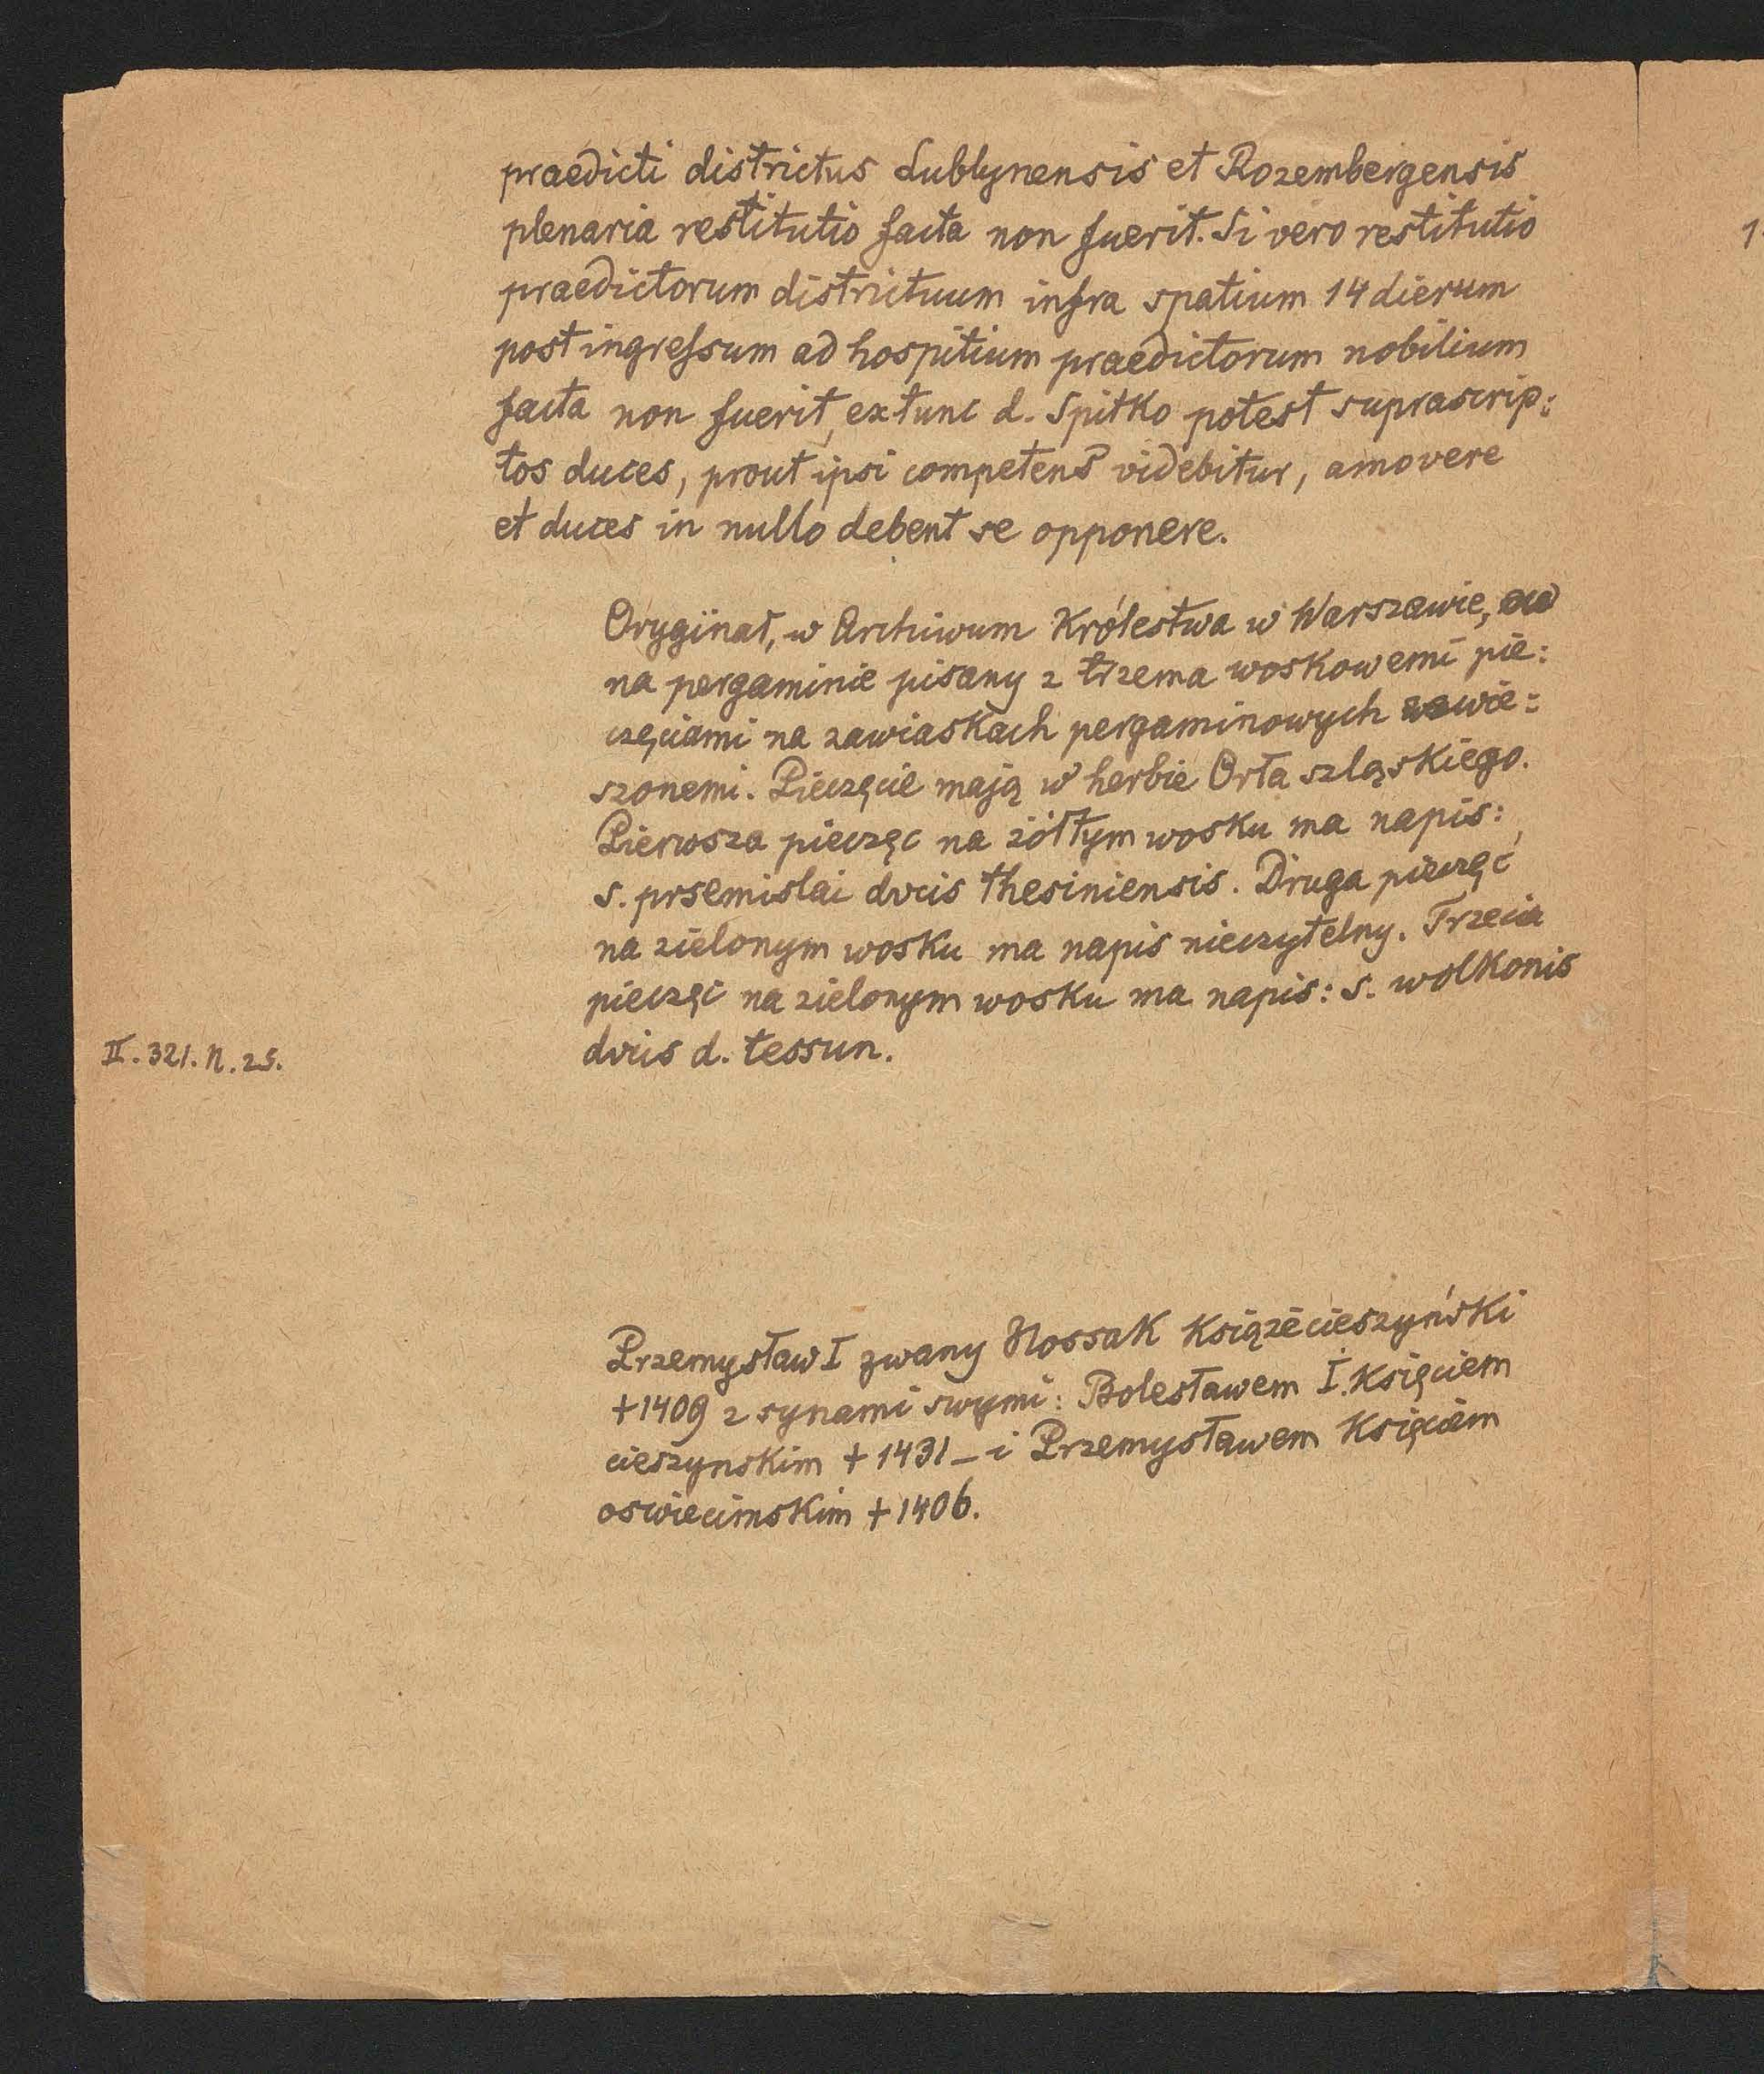 praedicti districtus Lublynensis et Rozembergensis
plenaria restitutio facta non fuerit. Si vero restitutio
praedictorum districtuum infra spatium 14 dierum
post ingressum ad hospitium praedictorum nobilium
facta non fuerit, extunc d. Spitko potest suprascrip:
tos duces, prout ipsi competens videbitur, amovere
et duces in nullo debent se opponere.
Oryginał, w Archiwum Królestwa w Warszawie,
na pergaminie pisany z trzema woskowemi pie:
częciami na zawiaskach pergaminowych zawie:
szonemi. Pieczęcie mają w herbie Orła szląskiego.
Pierwsza pieczęc na żółtym wosku ma napis:
s. prsemislai dvcis thesiniensis. Druga pieczęć
na zielonym wosku ma napis nieczytelny. Trzecia
pieczęć na zielonym wosku ma napis: s. wolkonis
II. 321. N. 25.
dvcis d. tessun.
Przemysław I zwany Nossak Książe cieszyński
+1409 z synami swymi: Bolesławem I. Księciem
cieszynskim +1431 – i Przemysławem Księciem
oswiecimskim +1406.
1